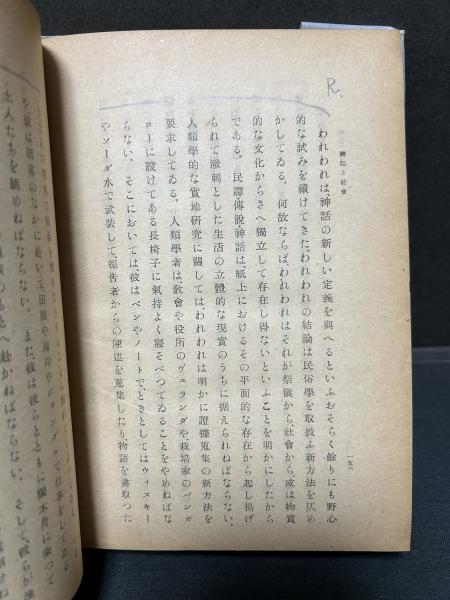 神話と社會
一五六
われわれは、神話の新しい定義を與へるといふおそらく餘りにも野心
的な試みを續けてきた。われわれの結論は民俗學を取扱ふ新方法を仄め
かしてゐる。何故ならばわれわれはそれが祭儀から、社會から或は物質
的な文化からさへ獨立して存在し得ないといふことを明かにしたから
である。民譚、傳說、神話は、紙上におけるその平面的な存在から起し揚げ
られて潑剌とした生活の立體的な現實のうちに据えられねばならない。
人類學的な實地硏究に關しては、われわれは明かに證據蒐集の新方法を
要求してゐる。人類學者は敎會や役所のヴェランダや栽培家のバンガ
ローに設けてある長椅子に氣持よく寢そべつてゐることをやめねばな
らない、そこにおいては、彼はペンやノートで、ときとしてはウィスキー
やソーダ水で武裝して、報吿者からの陳述を蒐集したり物語を書取つた
仕事をしてゐる
や彼は部落のなかに赴いて田園や海岸や
土人たちを眺めねばならない。また、彼は彼らとともに獨木舟に乘つて
赴かねばならない。そして、彼らが漁